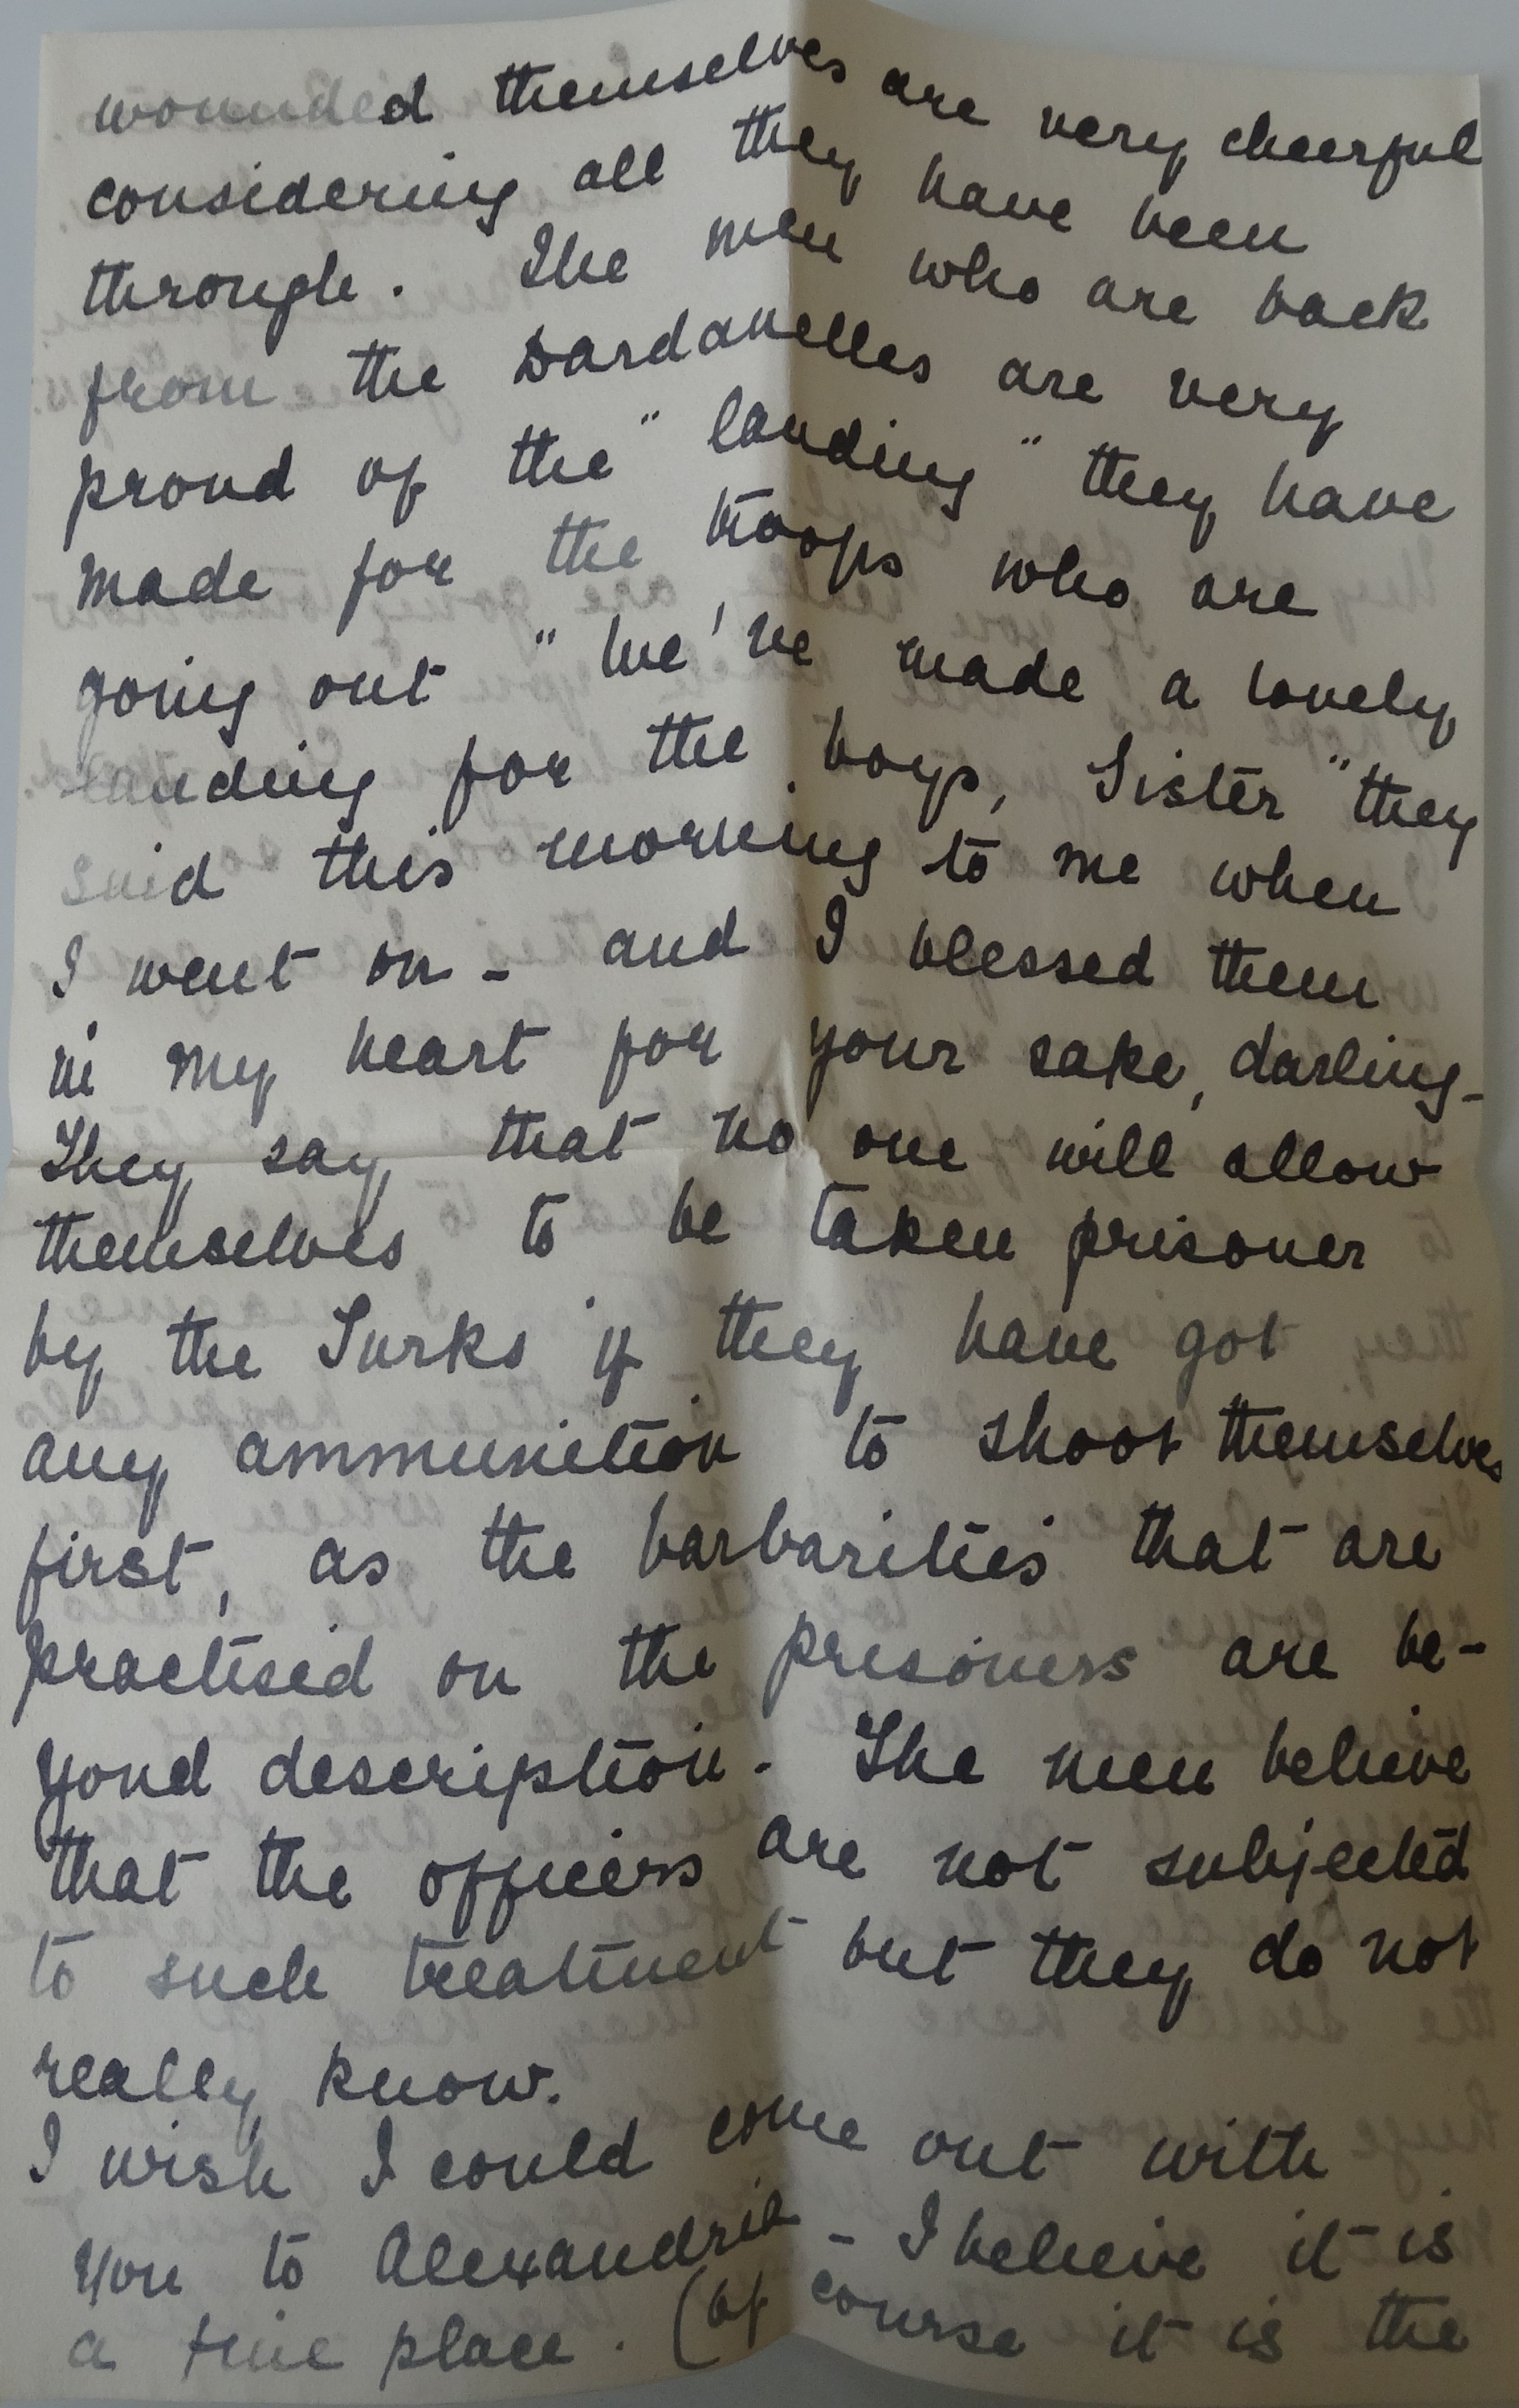 wounded themselves are very cheerful
considering all they have been
through. The men who are back
from the Dardanelles are very
proud of the "landing" they have
made for the troops who are
going out "We've made a lovely
landing for the boys, Sister" they
said this morning to me when
I went on - and I blessed them
in my heart for your sake, darling -
They say that no one will allow
themselves to be taken prisoner
by the Turks if they have got
any ammunition to shoot themselves
first, as the barbarities that are
practised on the prisoners are be-
yond description. The men believe
that the officers are not subjected
to such treatment but they do not
really know.
I wish I could come out with
you to Alexandria - I believe it is
a fine place. (Of course it is the